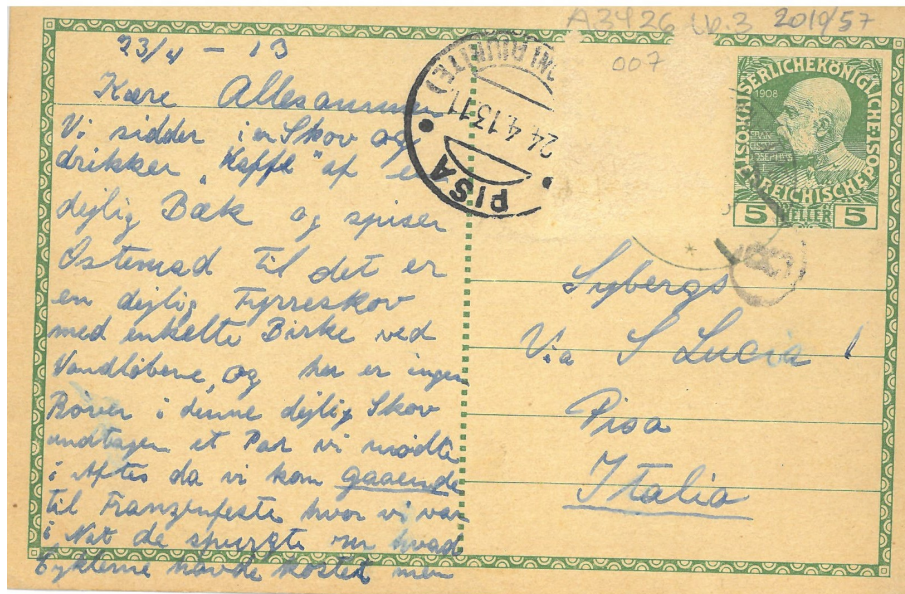 A3426 Nr. 3 2019/57
007
23/4 - 13
Kære Allesammen
Vi sidder i en Skov og
drikker "Kaffe" af en
dejlig Bæk og spiser
Ostemad til det er
en dejlig Fyrreskov
med enkelte Birke ved
Vandløbene, og her er ingen
Røver i denne dejlig Skov
undtagen et Par vi mødte
i Aftes da vi kom gaaende
til Franzenfeste hvor vi var
i Nat de spurgte om hvad
Tykterne havde kostet men
PISA
24.4.13.11
1908
KAISERLICHEKÖNIGLICHE
ÖSTERREICHISCHE POST
5 HELLER 5
Sybergs
Via S Lucia 1
Pisa
Italia